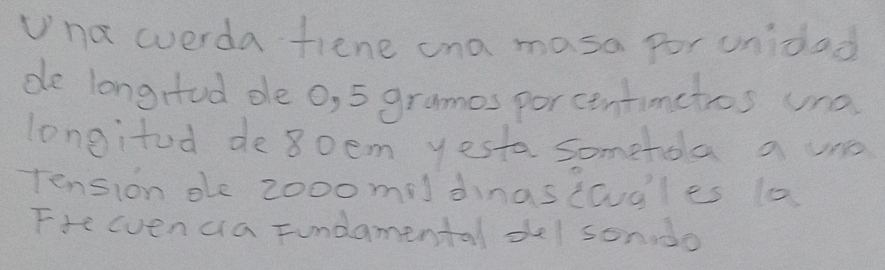 Una cuerda tiene una masa por unidad
de longitud de 0,5 gramos por centimetros una
longitud de 80em y esta sometida a una
Tensión de 2000 mil dinas ¿cuál es la
Frecuencia Fundamental del sonido